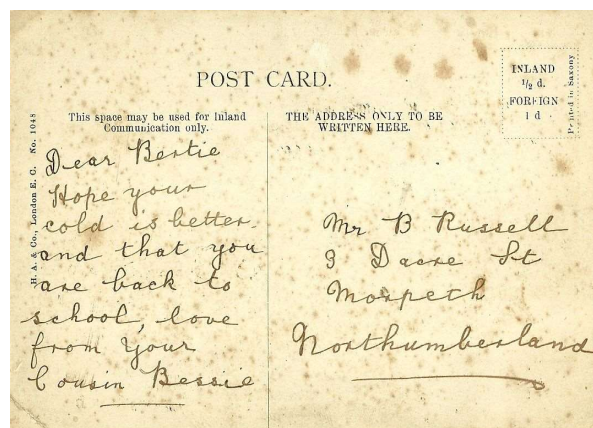 POST CARD.
INLAND
½ d.
FOREIGN
1 d
Printed in Saxony
H. A. & Co., London E. C. No. 1048
This space may be used for Inland
Communication only.
THE ADDRESS ONLY TO BE
WRITTEN HERE.
Dear Bertie
Hope your
cold is better
and that you
are back to
school, love
from Your
Cousin Bessie
Mr B Russell
3 Dacre St
Morpeth
Northumberland